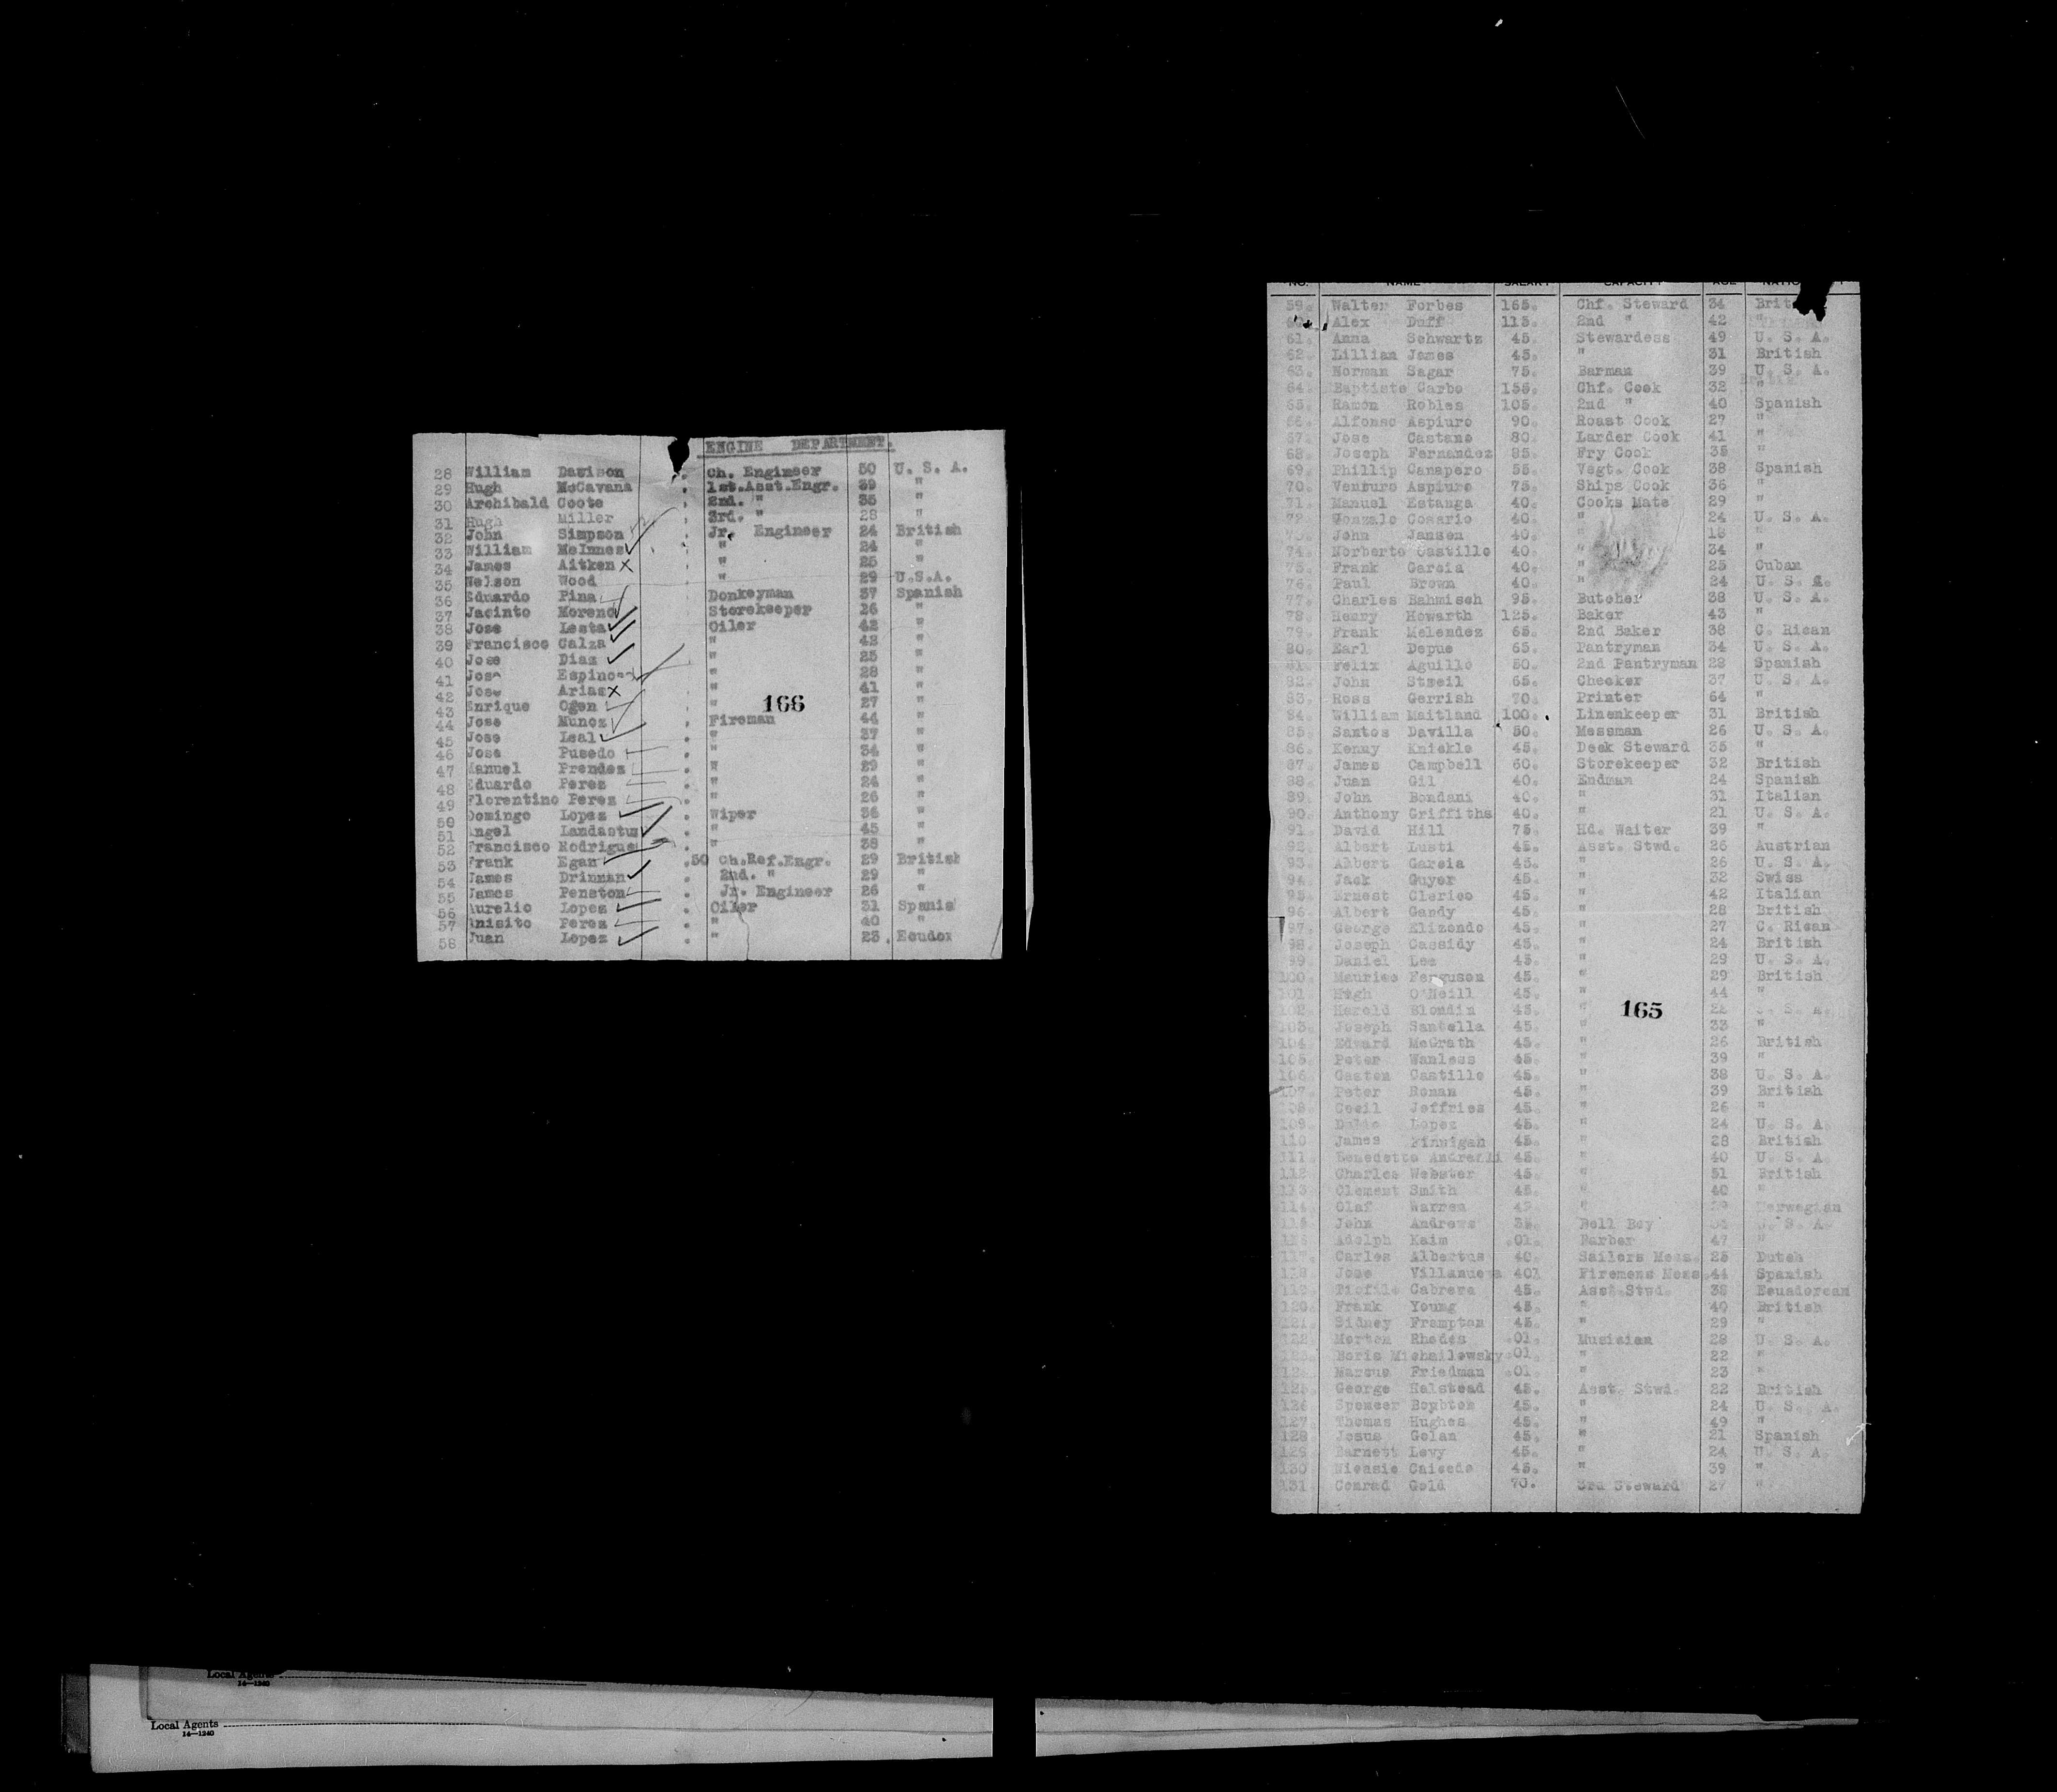 ENGINE DEPARTMENT.
28 William Davison Ch. Engineer 50 U. S. A.
29 Hugh McCavana 1st.Asst.Engr. 39 "
30 Archibald Coote 2nd. " 35 "
31 Hugh Miller 3rd. " 28 "
32 John Simpson Jr. Engineer 24 British
33 William McInnes " 24 "
34 James Aitken X " 25 "
35 Nelson Wood " 29 U.S.A.
36 Eduardo Pina Donkeyman 37 Spanish
37 Jacinto Moreno Storekeeper 26 "
38 Jose Lesta Oiler 42 "
39 Francisco Calza " 42 "
40 Jose Diaz " 25 "
41 Jose " 28 "
42 Jose Arias X " 41 "
43 Enrique Ogen " 27 "
166
44 Jose Munoz Fireman 44 "
45 Jose Leal " 37 "
46 Jose Pusedo " 34 "
47 Manuel Prendes " 29 "
48 Eduardo Perez " 24 "
49 Florentino Perez " 26 "
50 Domingo Lopez Wiper 36 "
51 Angel " 45 "
52 Francisco Rodrigue " 38 "
53 Frank Egan .50 Ch.Ref.Engr. 29 British
54 James Drinnan 2nd. " 29 "
55 James Penston Jr. Engineer 26 "
56 Aurelio Lopez Oiler 31 Spanis
57 Anisito Perez " 40 "
58 Juan Lopez " 23. Ecudor
NO. NAME SALARY CAPACITY AGE
59. Walter Forbes 165. Chf. Steward 34 Brit
Alex Duff 115. 2nd " 42 "
61. Anna Schwartz 45. Stewardess 49 U. S. A.
62. Lillian James 45. " 31 British
63. Norman Sagar 75. Barman 39 U. S. A.
64. Baptiste Carbo 155. Chf. Cook 32 "
65. Ramon Robles 105. 2nd " 40 Spanish
66. Alfonso Aspiuro 90. Roast Cook 27 "
67. Jose Castano 80. Larder Cook 41 "
68. Joseph Fernandez 85. Fry Cook 35 "
69. Phillip Canapero 55. Vegt. Cook 38 Spanish
70. Venturo Aspiuro 75. Ships Cook 36 "
71. Manuel Estanga 40. Cooks Mate 29 "
72. Gonzalo Cosario 40. " 24 U. S. A.
73. John Jansen 40. " 18 "
74. Norberto Castillo 40. " 34 "
75. Frank Garcia 40. " 25 Cuban
76. Paul Brown 40. " 24 U. S. A.
77. Charles Bahmisch 95. Butcher 38 U. S. A.
78. Henry Howarth 125. Baker 43 "
79. Frank Melendez 65. 2nd Baker 38 C. Rican
80. Earl Depue 65. Pantryman 34 U. S. A.
81. Felix Aguillo 50. 2nd Pantryman 28 Spanish
82. John Stweil 65. Checker 37 U. S. A.
83. Ross Gerrish 70. Printer 64 "
84. William Maitland 100. Linenkeeper 31 British
85. Santos Davilla 50. Messman 26 U. S. A.
86. Kenny Knickle 45. Deck Steward 35 "
87. James Campbell 60. Storekeeper 32 British
88. Juan Gil 40. Endman 24 Spanish
89. John Bondani 40. " 31 Italian
90. Anthony Griffiths 40. " 21 U. S. A.
91. David Hill 75. Hd. Waiter 39 "
92. Albert Lusti 45. Asst. Stwd. 26 Austrian
93. Albert Garcia 45. " 26 U. S. A.
94. Jack Guyer 45. " 32 Swiss
95. Ernest Clerico 45. " 42 Italian
96. Albert Gandy 45. " 28 British
97. George Elizondo 45. " 27 C. Rican
98. Joseph Cassidy 45. " 24 British
99. Daniel Lee 45. " 29 U. S. A.
100. Maurice Ferguson 45. " 29 British
101. Hugh O'Neill 45. " 44 "
102. Harold Blondin 45. "
165
103. Joseph Santella 45. " 33 "
104. Edward McGrath 45. " 26 British
105. Peter Wanless 45. " 39 "
106. Gaston Castillo 45. " 38 U. S. A.
107. Peter Roman 45. " 39 British
108. Cecil Jeffries 45. " 26 "
109. Lopez 45. " 24 U. S. A.
110 James Finnigan 45. " 28 British
111. Benedetto 45. " 40 U. S. A.
112 Charles Webster 45. " 51 British
113 Clement Smith 45. " 40 "
114 Olaf Warren 45 " Norwegian
115 John Andrews 35. Bell Boy U. S. A.
116 Adolph Kaim .01. Barber 47 "
117. Carlos Albertus 40. Sailors Mess. 25 Dutch
118. Jose Villanueva 40. Firemens Mess. 44 Spanish
119. Tiofilo Cabrera 45. Asst.Stwd. 38 Ecuadorean
120. Frank Young 45. " 40 British
121. Sidney Frampton 45. " 29 "
122. Morton Rhodes .01. Musician 28 U. S. A.
123. Boris Michailowsky .01. " 22 "
124. Marcus Friedman .01. " 23 "
125. George Halstead 45. Asst. Stwd. 22 British
126. Spencer Boynton 45. " 24 U. S. A.
127. Thomas Hughes 45. " 49 "
128. Jesus Golan 45. " 21 Spanish
129. Barnett Levy 45. " 24 U. S. A.
130 Nicasio Caicedo 45. " 39 "
131. Conrad Gold 70. 3rd Steward 27 "
Local Agents
14—1240
Local Agents
14—1240